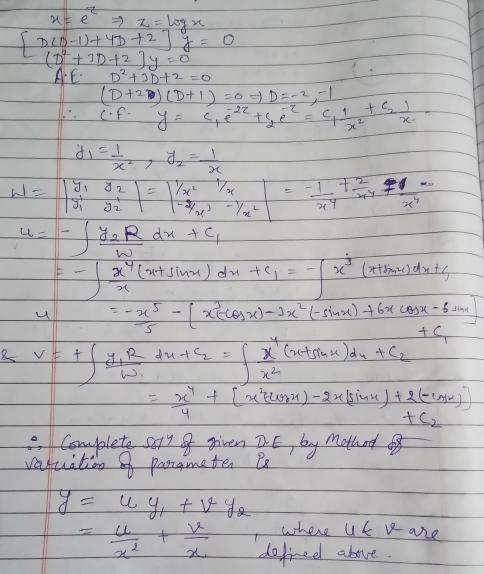 x = e^z ⇒ z = log x
[D(D-1)+4D+2] y = 0
(D²+3D+2) y = 0
A.E. D²+3D+2 = 0
(D+2)(D+1) = 0 ⇒ D = -2, -1
∴ C.F. y = c₁e^-2z + c₂e^-z = c₁ 1/x² + c₂ 1/x.
y₁ = 1/x² , y₂ = 1/x
W = |y₁ y₂; y₁' y₂'| = |1/x² 1/x; -2/x³ -1/x²| = -1/x⁴ + 2/x⁴ = 1/x⁴
u = - ∫ y₂R/W dx + c₁
= - ∫ x⁴/x (x+sinx) dx + c₁ = - ∫ x³ (x+sinx) dx + c₁
u = -x⁵/5 - [x³(-cosx) - 3x²(-sinx) + 6x cosx - 6 sinx] + c₁
& v = + ∫ y₁R/W dx + c₂ = ∫ x⁴/x² (x+sinx) dx + c₂
= x⁴/4 + [x²(-cosx) - 2x(sinx) + 2(-cosx)] + c₂
∴ Complete solⁿ of given D.E, by Method of
variation of parameter is
y = u y₁ + v y₂
= u/x² + v/x , where u & v are
defined above.